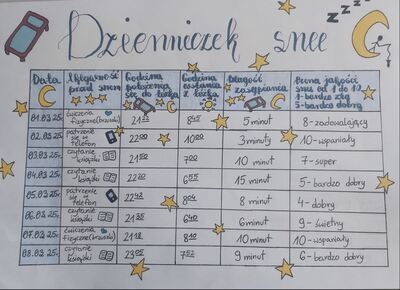 Dzienniczek snu
Data
Aktywność
przed snem
Godzina
położenia
się do łóżka
Godzina
wstania
z łóżka
Długość
zasypiania
Ocena jakości
snu od 1 do 10
1-bardzo zły
5-bardzo dobry
01.03.25r.
ćwiczenia
fizyczne(brzuszki)
21
8
5 minut
8-zadowalający
02.03.25r.
patrzenie
się w
telefon
22⁰⁰
10⁰⁰
3 minuty
10-wspaniały
03.03.25r.
czytanie
książki
21
7⁰⁰
10 minut
7-super
04.03.25r.
czytanie
książki
22
6⁵⁵
15 minut
5-bardzo dobry
05.03.25r.
patrzenie
się w
telefon
22
9⁰⁴
8 minut
4-dobry
06.03.25r.
czytanie
książki
21
6⁴⁰
6 minut
9-świetny
07.03.25r.
ćwiczenia
fizyczne(brzuszki)
21
8¹⁰
10 minut
10-wspaniały
08.03.25r.
czytanie
książki
23⁰⁵
7
9 minut
6-bardzo dobry